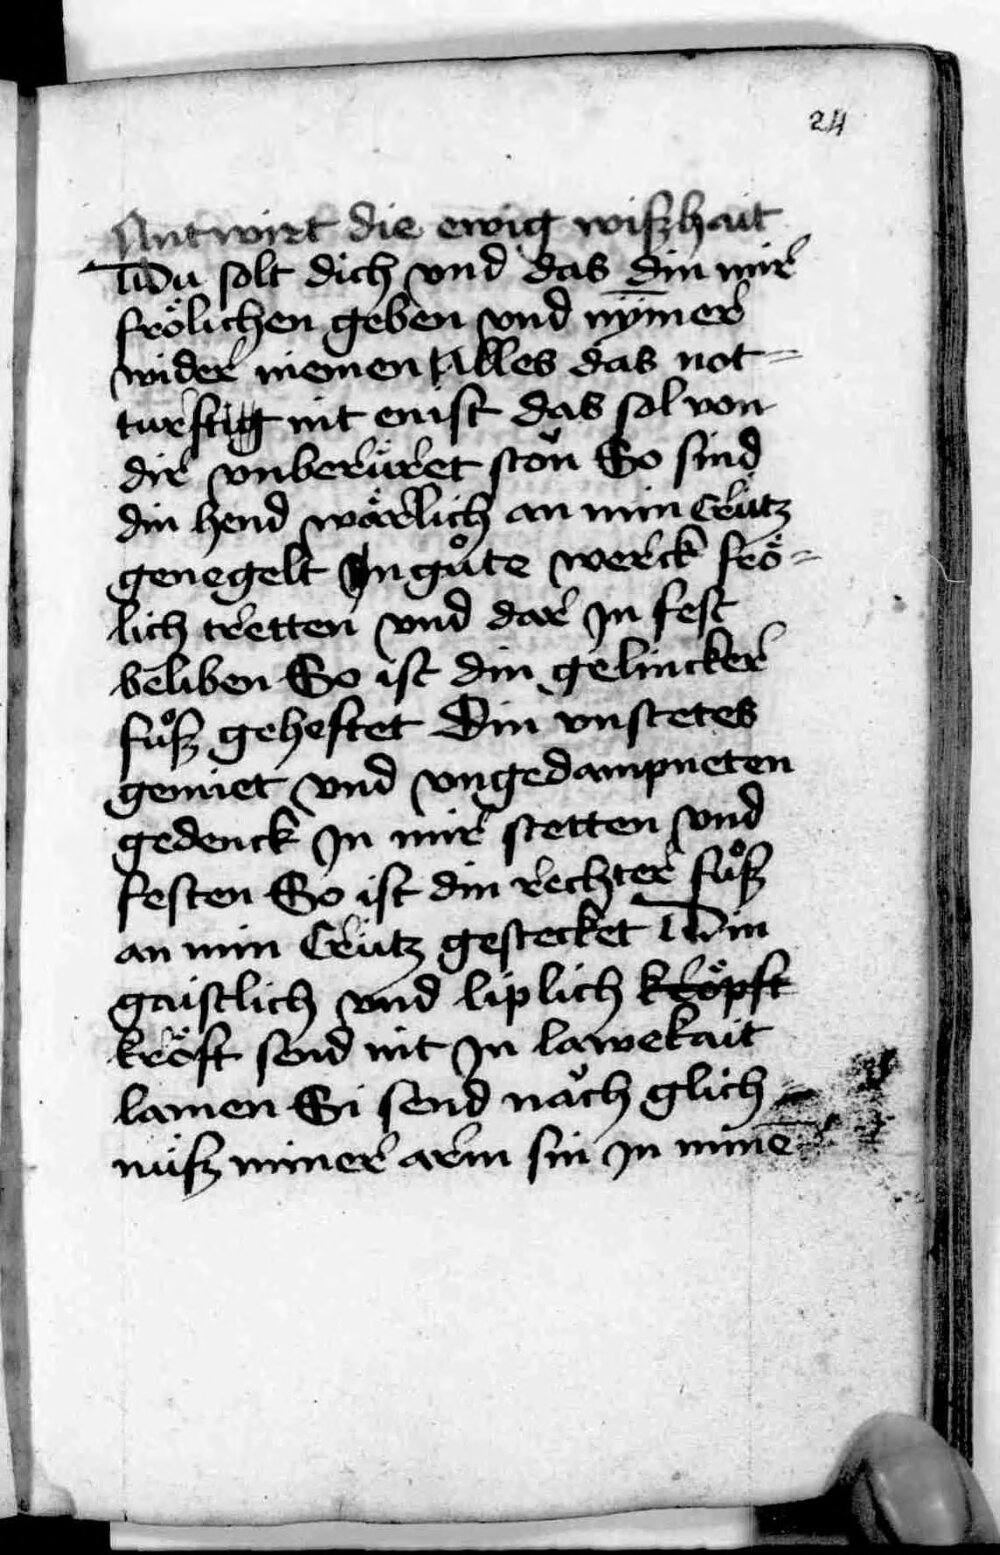 24
Antwirt die ewig wißhait
Du solt dich vnd das din mir
frölichen geben vnd nÿmer
wider niemen Alles das not=
turftig nit enist das sol von
dir vnberüret ston So sind
din hend wärlich an min Crütz
genegelt In gůte werck frö=
lich tretten vnd dar jn fest
beliben So ist din gelincker
fůß geheftet Din vnstetes
gemiet vnd vngedampneten
gedenck jn mir stetten vnd
festen So ist din rechter fůß
an min Crütz gestecket Din
gaistlich vnd liplich kröpft
kröft send nit jn lawekait
lamen Si send nách glich
nüß miner arm sin jn minē